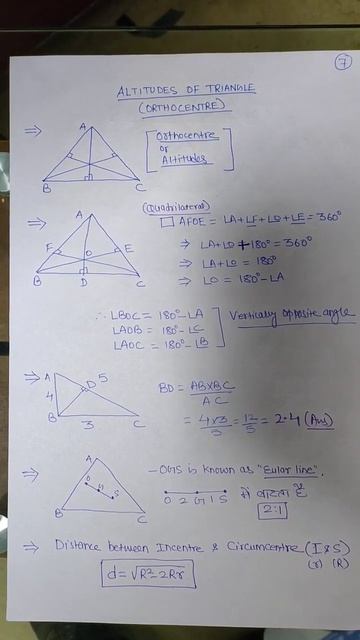 7
ALTITUDES OF TRIANGLE
(ORTHOCENTRE)
⇒ A B C
[Orthocentre
or
Altitudes]
⇒ A F E O B D C
(Quadrilateral)
□ AFOE = ∠A+∠F+∠O+∠E = 360°
⇒ ∠A+∠O+180° = 360°
⇒ ∠A+∠O = 180°
⇒ ∠O = 180°-∠A
∴ ∠BOC = 180°-∠A
∠AOB = 180°-∠C
∠AOC = 180°-∠B
Vertically opposite angle
⇒ A D 5 4 B 3 C
BD = AB×BC/AC
= 4×3/5 = 12/5 = 2.4 (Ans)
⇒ A O G S B C
- OGS is known as "Eular line".
O 2 G 1 S में बांटता है
2:1
⇒ Distance between Incentre & Circumcentre (I & S)
(r) (R)
d = √R²-2Rr